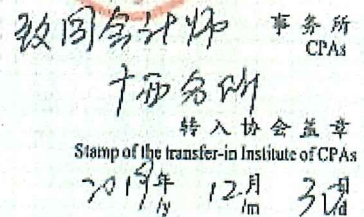 致同会计师 事务所
CPAs
广西分所
转入协会盖章
Stamp of the transfer-in Institute of CPAs
2019年 12月 31日
/y /m /d